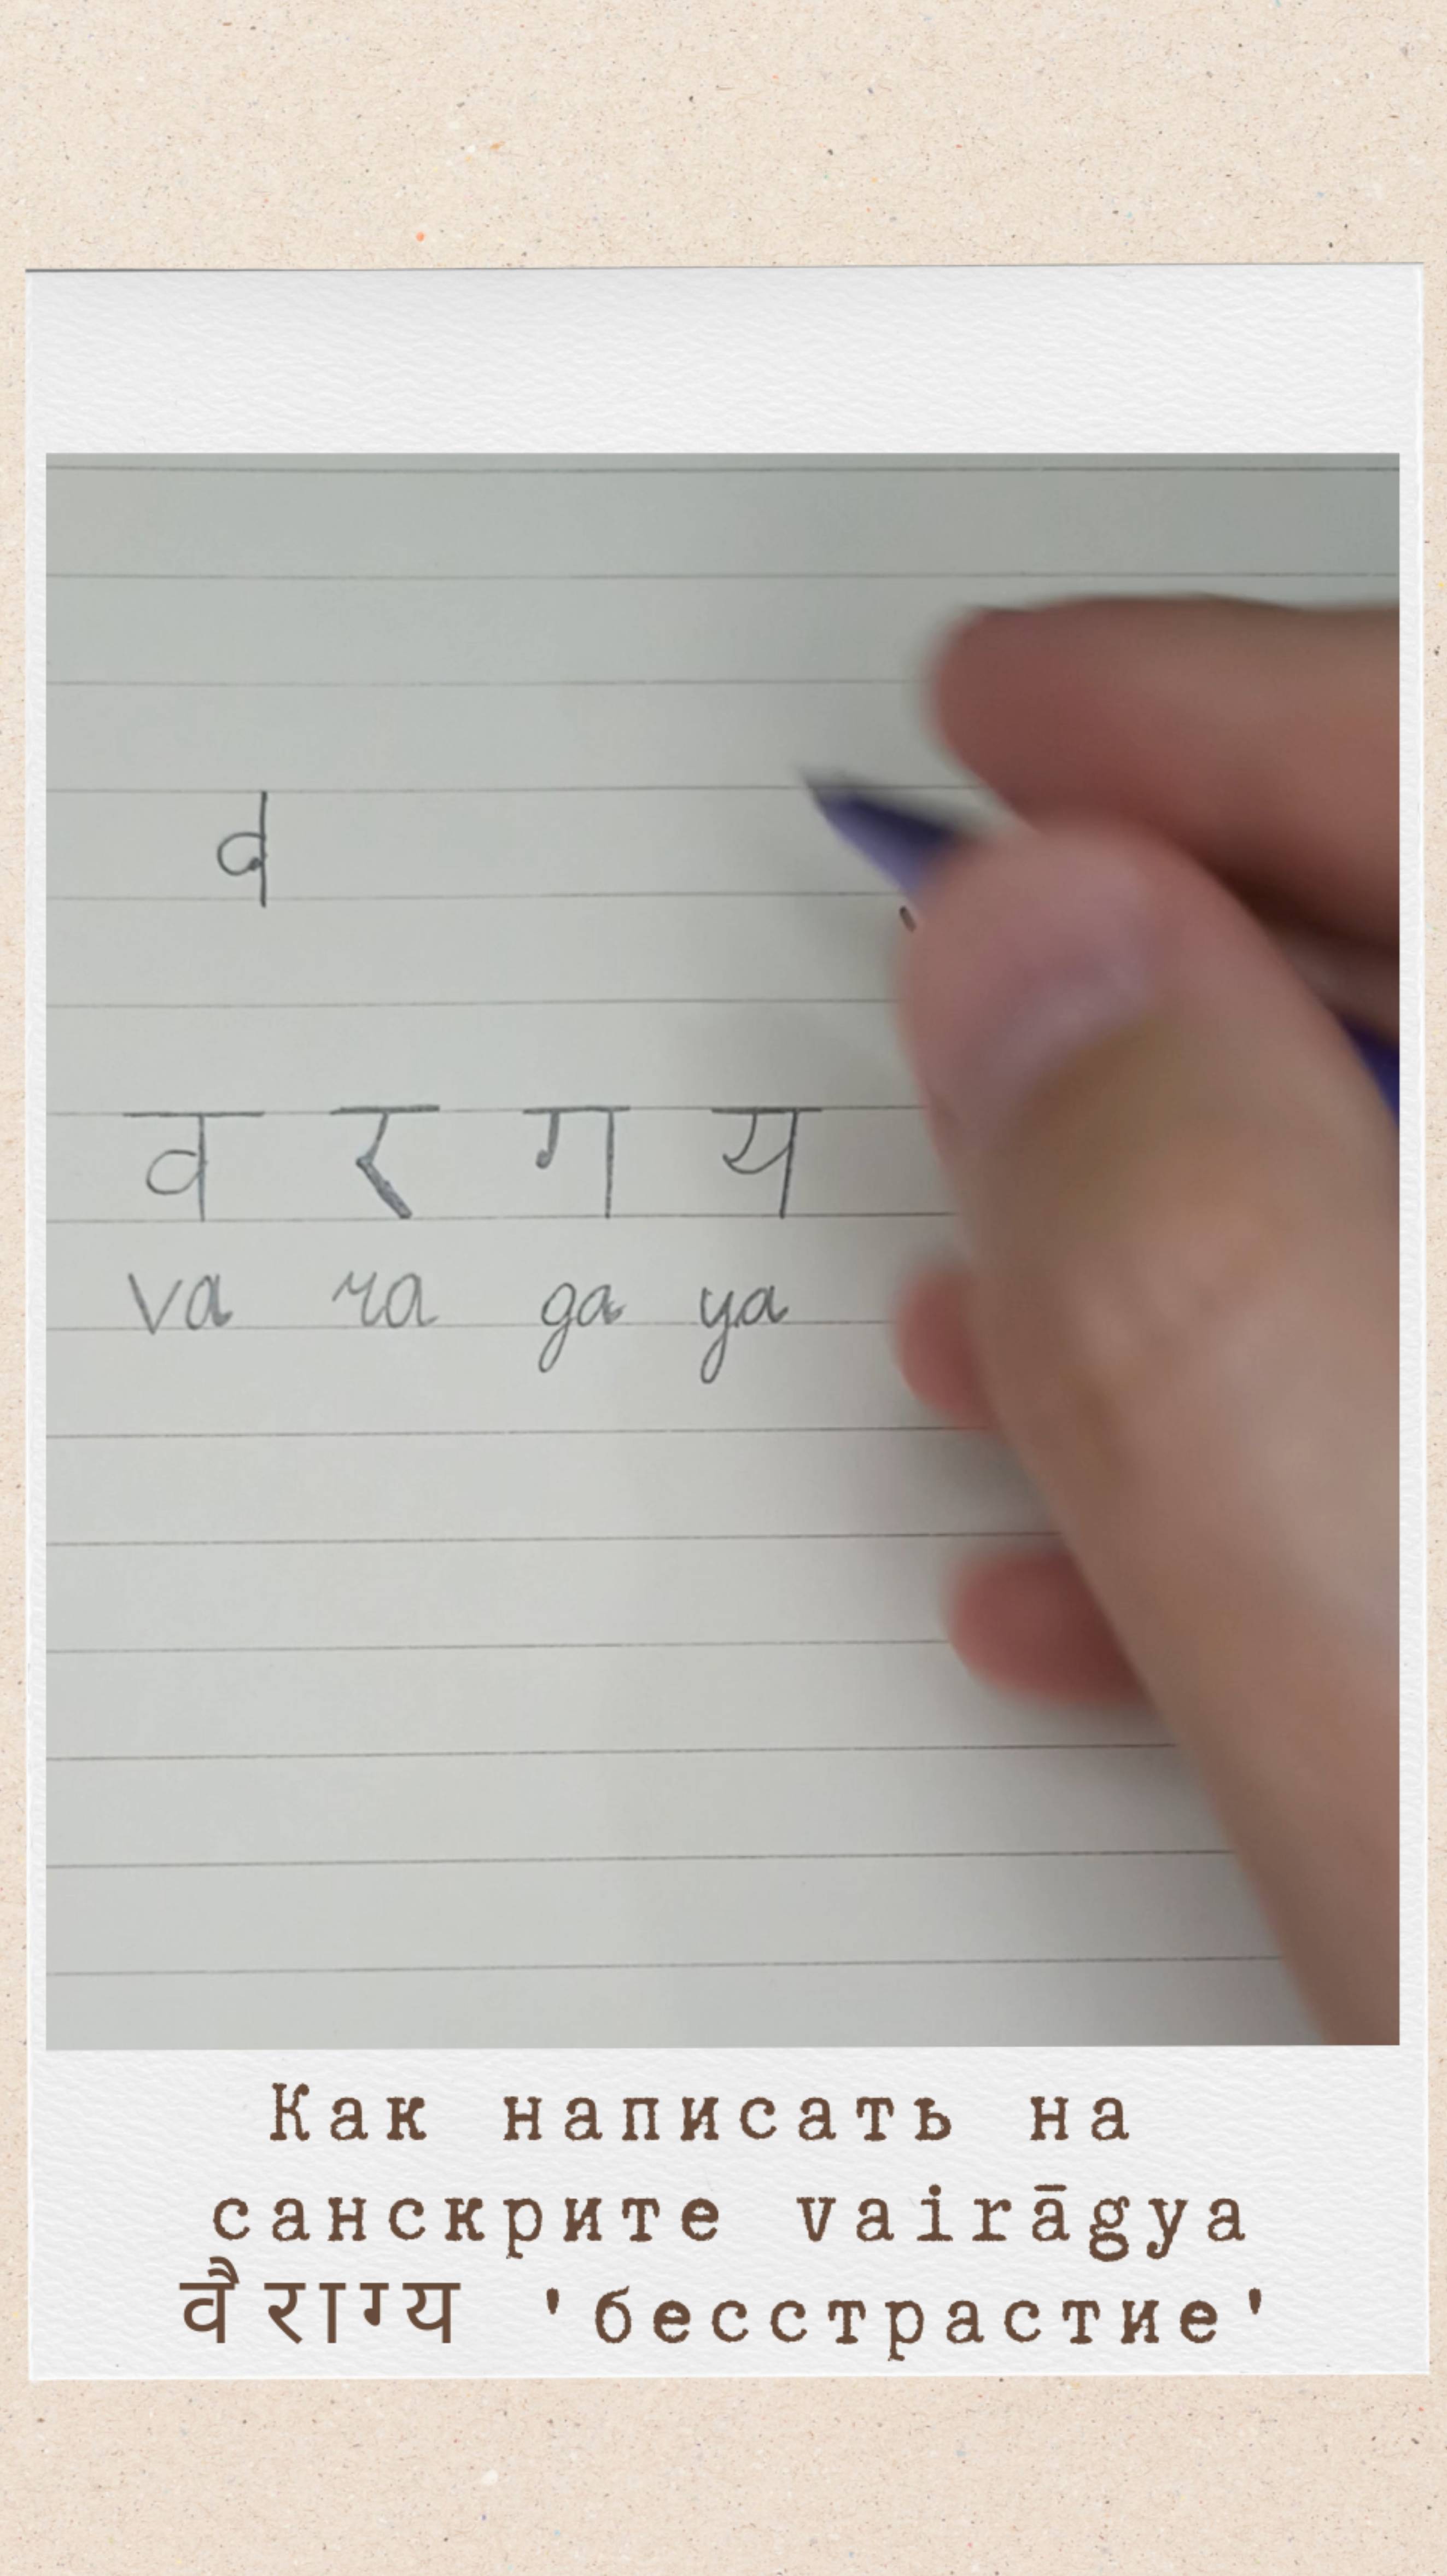 व
व र ग य
va ra ga ya
Как написать на
санскрите vairāgya
वैराग्य 'бесстрастие'